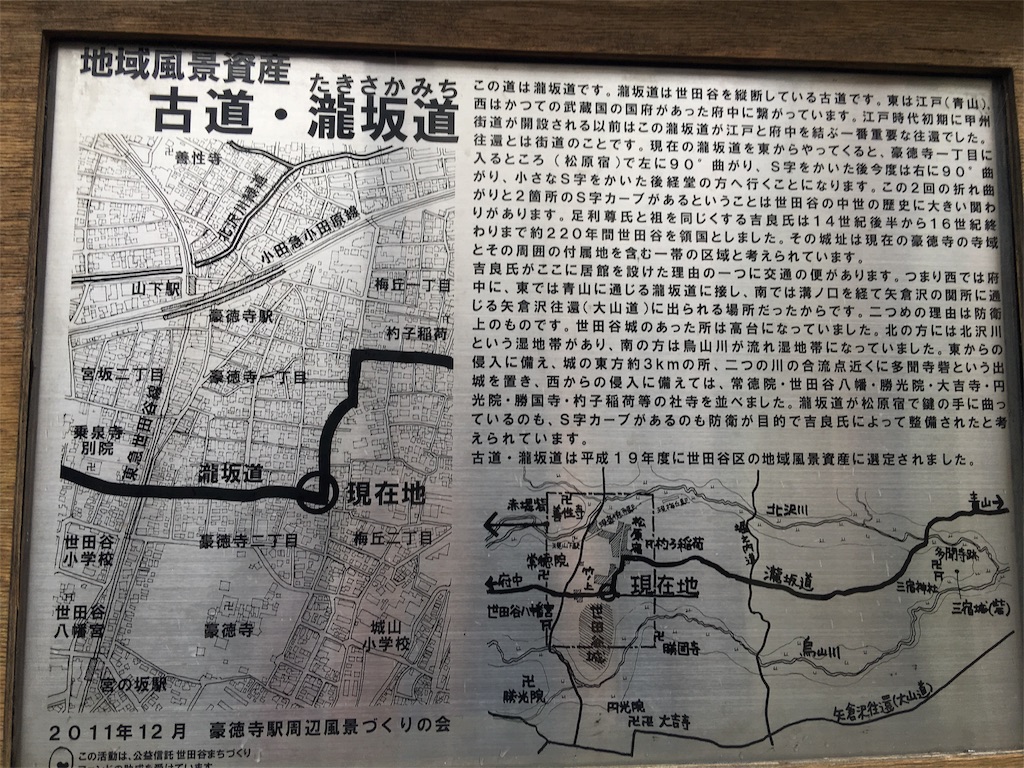 地域風景資産
たきさかみち
古道・瀧坂道
この道は瀧坂道です。瀧坂道は世田谷を縦断している古道です。東は江戸(青山)、
西はかつての武蔵国の国府があった府中に繋がっています。江戸時代初期に甲州
街道が開設される以前はこの瀧坂道が江戸と府中を結ぶ一番重要な往還でした。
往還とは街道のことです。現在の瀧坂道を東からやってくると、豪徳寺一丁目に
入るところ(松原宿)で左に90°曲がり、S字をかいた後今度は右に90°曲
がり、小さなS字をかいた後経堂の方へ行くことになります。この2回の折れ曲
がりと2箇所のS字カーブがあるということは世田谷の中世の歴史に大きい関わ
りがあります。足利尊氏と祖を同じくする吉良氏は14世紀後半から16世紀終
わりまで約220年間世田谷を領国としました。その城址は現在の豪徳寺の寺域
とその周囲の付属地を含む一帯の区域と考えられています。
吉良氏がここに居館を設けた理由の一つに交通の便があります。つまり西では府
中に、東では青山に通じる瀧坂道に接し、南では溝ノ口を経て矢倉沢の関所に通
じる矢倉沢往還(大山道)に出られる場所だったからです。二つめの理由は防衛
上のものです。世田谷城のあった所は高台になっていました。北の方には北沢川
という湿地帯があり、南の方は烏山川が流れ湿地帯になっていました。東からの
侵入に備え、城の東方約3kmの所、二つの川の合流点近くに多聞寺砦という出
城を置き、西からの侵入に備えては、常徳院・世田谷八幡・勝光院・大吉寺・円
光院・勝国寺・杓子稲荷等の社寺を並べました。瀧坂道が松原宿で鍵の手に曲っ
ているのも、S字カーブがあるのも防衛が目的で吉良氏によって整備されたと考
えられています。
古道・瀧坂道は平成19年度に世田谷区の地域風景資産に選定されました。
善性寺
北沢川緑道
小田急小田原線
山下駅
梅丘一丁目
豪徳寺駅
杓子稲荷
宮坂二丁目
豪徳寺一丁目
東急世田谷線
乗泉寺
別院
瀧坂道
現在地
世田谷
小学校
豪徳寺二丁目
梅丘二丁目
世田谷
八幡宮
豪徳寺
城山
小学校
宮の坂駅
赤堤砦
善性寺
松原宿
北沢川
青山
常徳院
杓子稲荷
堀之内道
多聞寺跡
府中
現在地
瀧坂道
三宿神社
三宿城(砦)
世田谷八幡宮
世田谷城
勝国寺
烏山川
勝光院
円光院
大吉寺
矢倉沢往還(大山道)
2011年12月 豪徳寺駅周辺風景づくりの会
この活動は、公益信託 世田谷まちづくり
ファンドの助成を受けています。